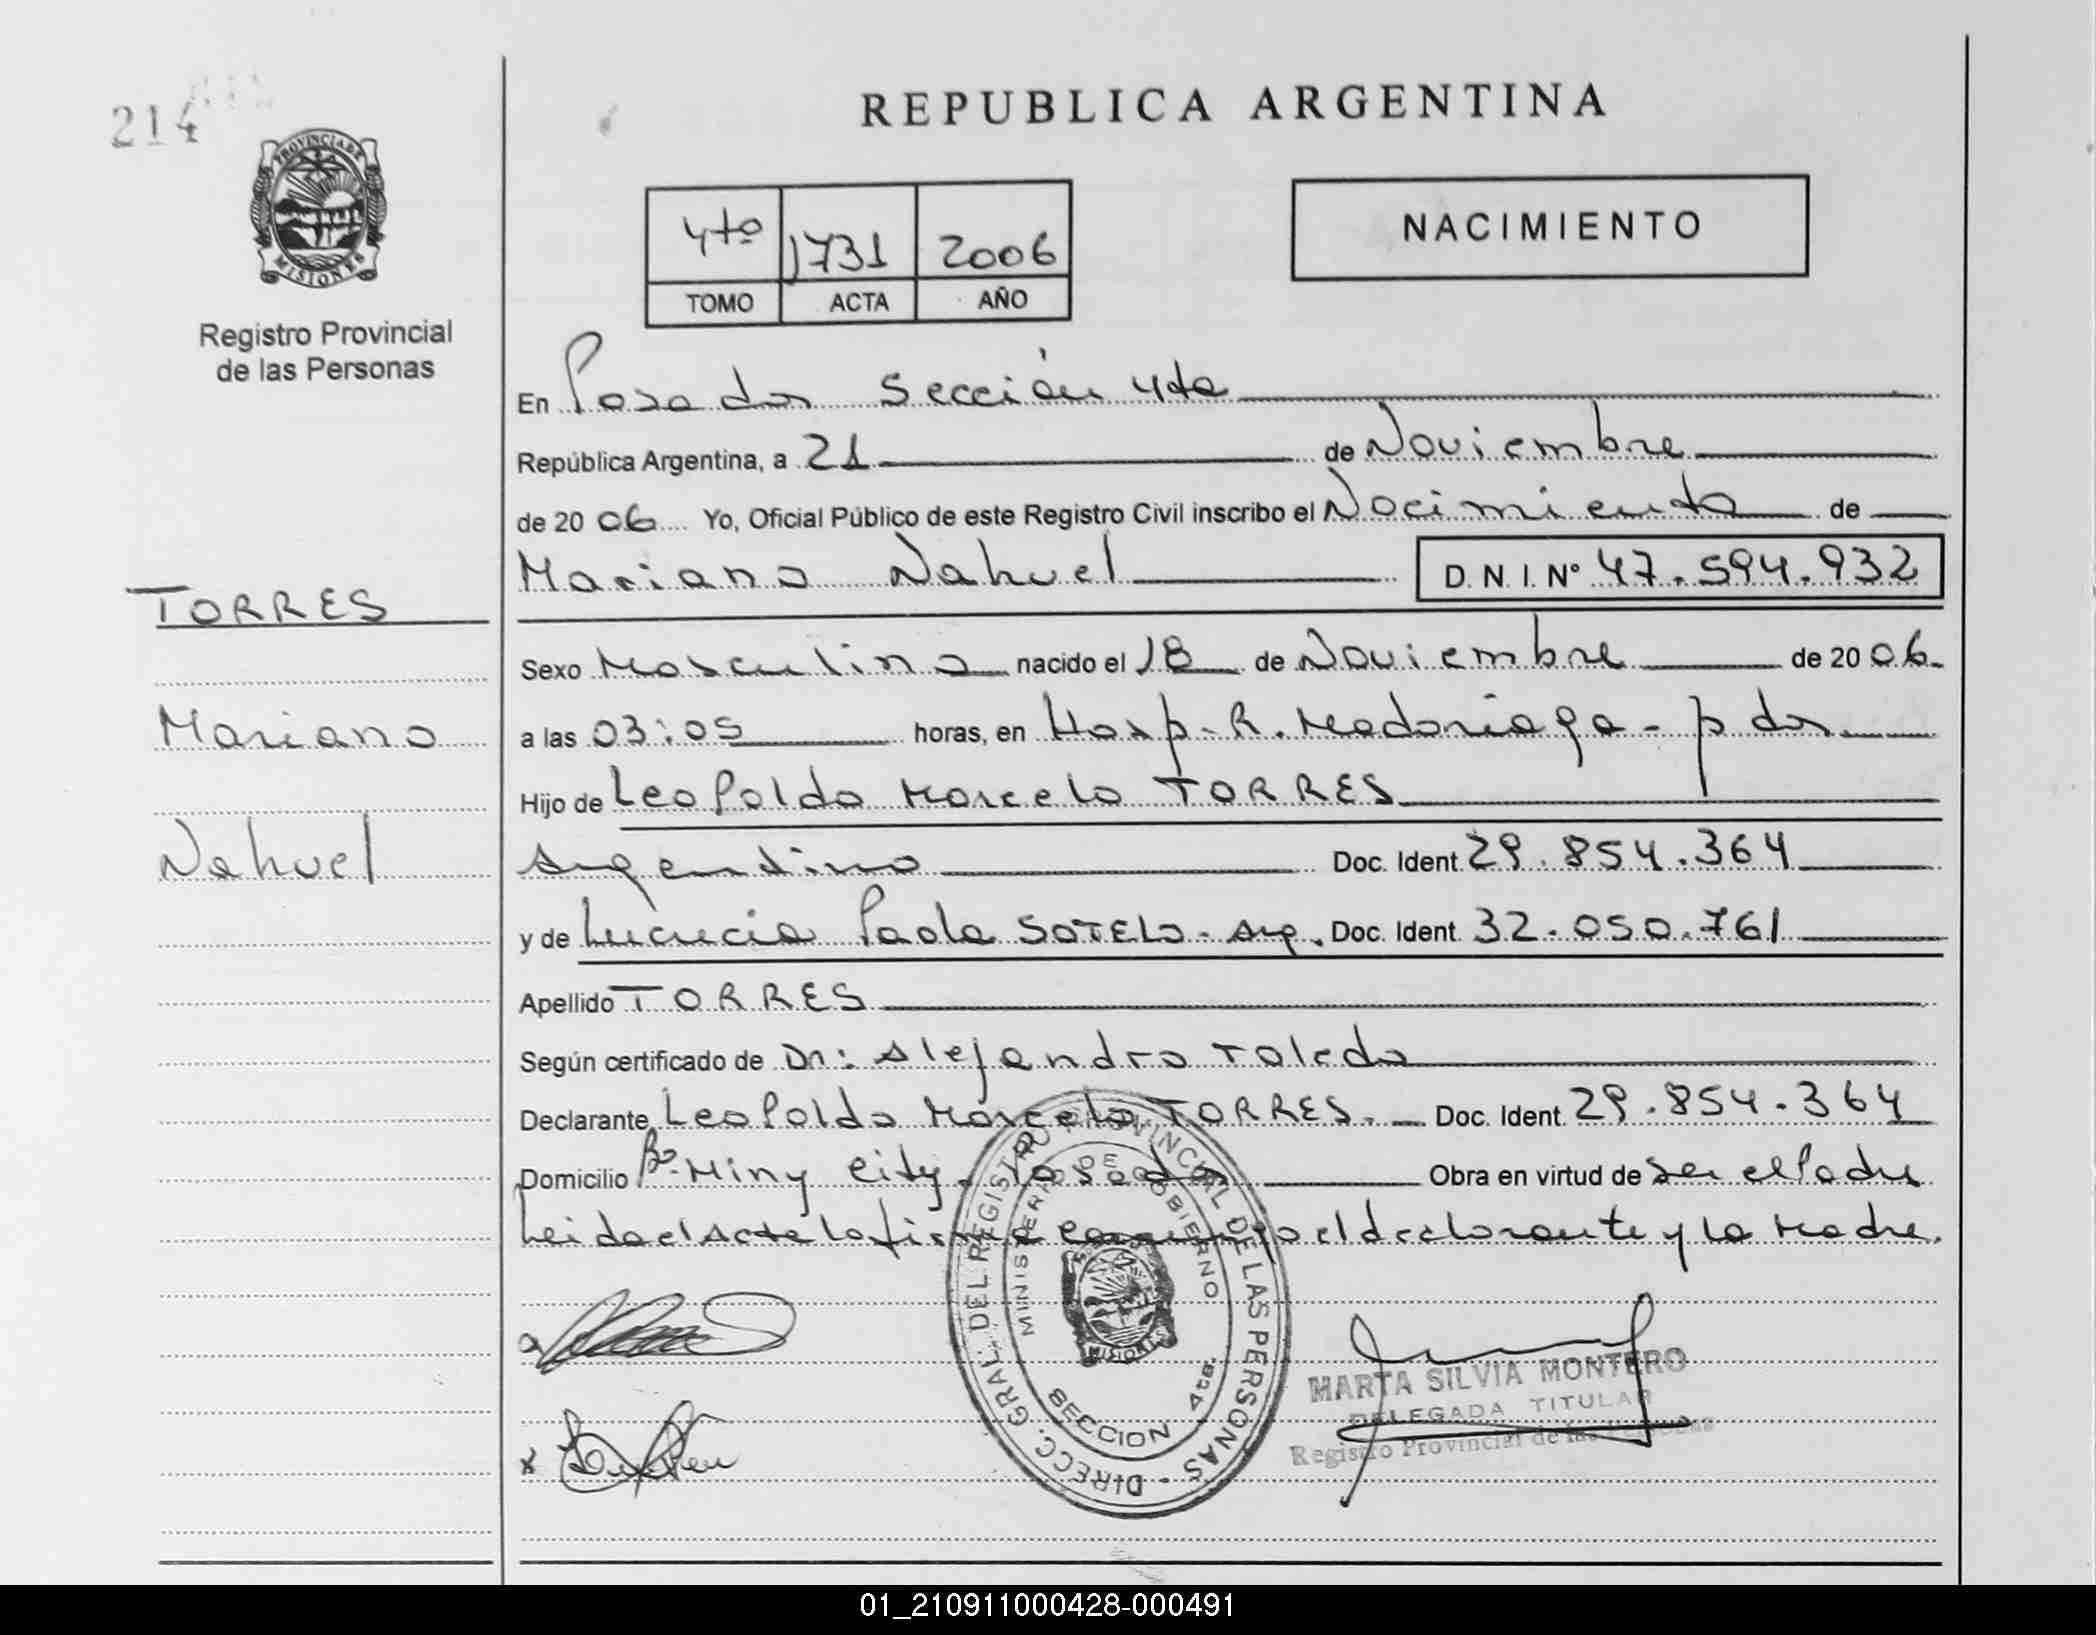 214
PROVINCIA DE
MISIONES
Registro Provincial
de las Personas
TORRES
Mariano
Nahuel
REPUBLICA ARGENTINA
4to 1731 2006
TOMO ACTA AÑO
NACIMIENTO
En Posadas Sección 4ta
República Argentina, a 21 de Noviembre
de 20 06 Yo, Oficial Público de este Registro Civil inscribo el Nacimiento de
Mariano Nahuel D.N.I. Nº 47.594.932
Sexo Masculino nacido el 18 de Noviembre de 20 06
a las 03:05 horas, en Hosp. R. Madariaga - pdas
Hijo de Leopoldo Marcelo TORRES
Argentino Doc. Ident. 29.854.364
y de Lucrecia Paola SOTELO - Arg. Doc. Ident. 32.050.761
Apellido TORRES
Según certificado de Dr: Alejandro Toledo
Declarante Leopoldo Marcelo TORRES. Doc. Ident. 29.854.364
Domicilio Bº Miny City. Posadas Obra en virtud de ser el Padre
Leida el Acta la firma conmigo el declarante y la Madre.
DIRECC. GRAL. DEL REGISTRO PROVINCIAL DE LAS PERSONAS -
MINISTERIO DE GOBIERNO
MISIONES
SECCION 4ta.
MARTA SILVIA MONTERO
DELEGADA TITULAR
Registro Provincial de las Personas
01_210911000428-000491